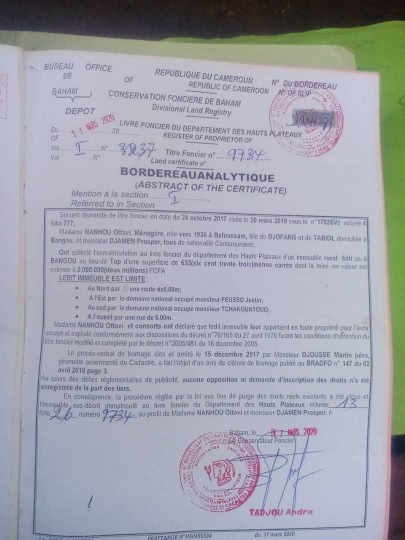 BUREAU OFFICE REPUBLIQUE DU CAMEROUN N° DU BORDEREAU
DE OF REPUBLIC OF CAMEROON N° OF SLIP
BAHAM CONSERVATION FONCIERE DE BAHAM
Divisional Land Registry
DEPOT
Du 17 MARS 2020 20 LIVRE FONCIER DU DEPARTEMENT DES HAUTS PLATEAUX
OF REGISTER OF PROPRIETOR OF
Vol I N° 3237 Titre Foncier n° 9734
Vol N° Land certificate n°
BORDEREAUANALYTIQUE
(ABSTRACT OF THE CERTIFICATE)
Mention à la section I
Referred to in Section
Suivant demande de titre foncier en date du 24 octobre 2017 visée le 20 mars 2018 sous n°17826/Vs volume 4
folio 777;
Madame NANHOU Ottavi, Ménagère, née vers 1936 à Bafoussam, fille de DJOFANG et de TABIDI, domiciliée à
Bangou, et monsieur DJAMEN Prosper, tous de nationalité Camerounaise,
Ont sollicité l'immatriculation au livre foncier du département des Hauts Plateaux d'un immeuble rural bâti sis à
BANGOU au lieu-dit Top d'une superficie de 633(six cent trente trois)mètres carrés dont la mise en valeur est
estimée à 2.000.000(deux millions) FCFA
LEDIT IMMEUBLE EST LIMITE :
Au Nord par une route de5.00m;
A l'Est par le domaine national occupé monsieur FEUSSO Justin;
Au sud par le domaine national occupé monsieur TCHAKOUNTOUO;
A l'ouest par une rue de 6.00m.
Madame NANHOU Ottavi et consorts ont déclaré que ledit immeuble leur appartient en toute propriété pour l'avoir
occupé et exploité conformément aux dispositions du décret n°76/165 du 27 avril 1976 fixant les conditions d'obtention du
titre foncier modifié et complété par le décret n°2005/481 du 16 décembre 2005.
Le procès-verbal de bornage clos et arrêté le 15 décembre 2017 par Monsieur DJOUSSE Martin jules,
géomètre assermenté de Cadastre, a fait l'objet d'un avis de clôture de bornage publié au BRADFO n° 147 du 02
avril 2018 page 3.
Au cours des délais réglementaires de publicité, aucune opposition ni demande d'inscription des droits n'a été
enregistrée de la part des tiers.
En conséquence, la procédure réglée par la loi aux fins de purge des droits réels existants a été close et
l'immeuble sus-décrit immatriculé au livre foncier du Département des Hauts Plateaux volume 13
folio 26 numéro 9734 au profit de Madame NANHOU Ottavi et monsieur DJAMEN Prosper. /-
Baham, le 17 MARS 2020
Le Conservateur Foncier
TADJOU Andre
du 17 mars 2020